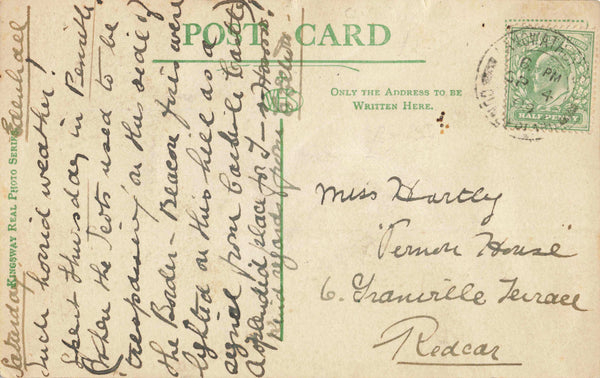 POST CARD
ONLY THE ADDRESS TO BE
WRITTEN HERE.
KINGSWAY REAL PHOTO SERIES
HALF PENNY
Saturday Edenhall
Such horrid weather!
Spent Thursday in Penrith
When the Scots used to be
'trespassing' on this side of
the Border - Beacon fires were
lighted on this hill as a
signal from Carlisle Castle
A splendid place for
Miss Hartly
"Vernon House"
6. Granville Terrace
Redcar